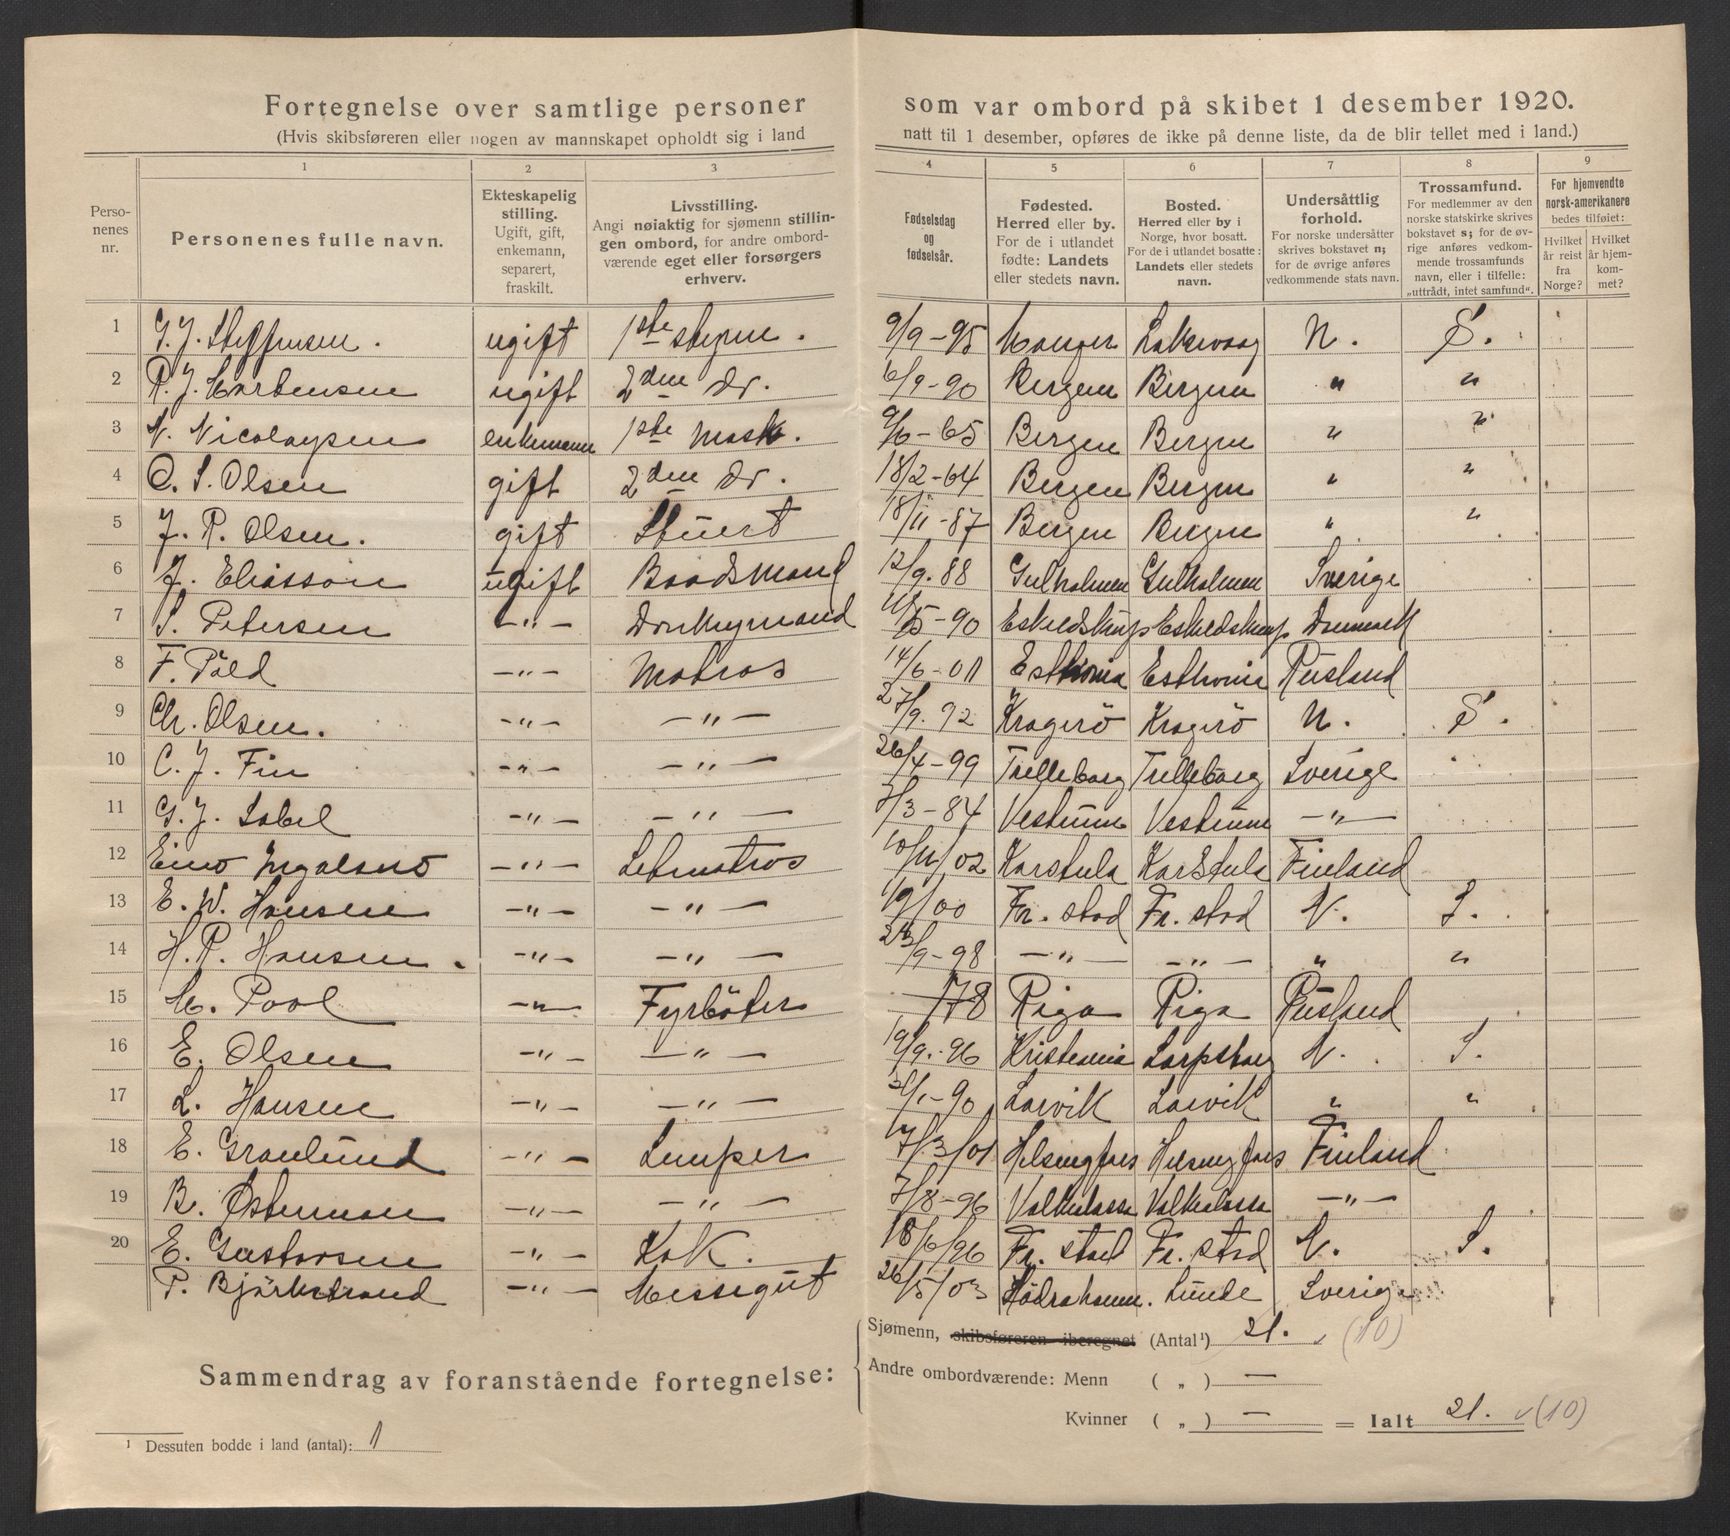 Fortegnelse over samtlige personer som var ombord på skibet 1 desember 1920.
(Hvis skibsføreren eller nogen av mannskapet opholdt sig i land natt til 1 desember, opføres de ikke på denne liste, da de blir tellet med i land.)
1 2 3 4 5 6 7 8 9
Perso-
nenes
nr.
Personenes fulle navn.
Ekteskapelig
stilling.
Ugift, gift,
enkemann,
separert,
fraskilt.
Livsstilling.
Angi nøiaktig for sjømenn stillin-
gen ombord, for andre ombord-
værende eget eller forsørgers
erhverv.
Fødselsdag
og
fødselsår.
Fødested.
Herred eller by.
For de i utlandet
fødte: Landets
eller stedets navn.
Bosted.
Herred eller by i
Norge, hvor bosatt.
For de i utlandet bosatte:
Landets eller stedets
navn.
Undersåttlig
forhold.
For norske undersåtter
skrives bokstavet n;
for de øvrige anføres
vedkommende stats navn.
Trossamfund.
For medlemmer av den
norske statskirke skrives
bokstavet s; for de øv-
rige anføres vedkom-
mende trossamfunds
navn, eller i tilfelle:
„uttrådt, intet samfund“.
For hjemvendte
norsk-amerikanere
bedes tilføiet:
Hvilket
år reist
fra
Norge?
Hvilket
år hjem-
kom-
met?
1 G. J. Steffensen. ugift 1ste styrm. 9/9-95 Manger Laksevaag N. S.
2 R. J. Mortensen ugift 2den do. 6/9-90 Bergen Bergen " "
3 N. Nicolaysen enkemann 1ste Mask. 9/6-65 Bergen Bergen " "
4 O. S. Olsen gift 2den do. 18/2-64 Bergen Bergen " "
5 J. R. Olsen. gift Stuert 18/11-87 Bergen Bergen " "
6 J. Eliasson ugift Baadsmand 12/9.88 Gulholmen Gulholmen Sverige
7 S. Petersen -"- Donkeymand /5-90 Eskildstrup Eskildstrup Danmark
8 F. Pöld -"- Matros 14/6-01 Esthonia Esthonia Rusland
9 Ch. Olsen. -"- -"- 27/9.92 Kragerö Kragerö N. S.
10 C. J. Fin -"- -"- 26/4-99 Trelleborg Trelleborg Sverige
11 G. J. Sabel -"- -"- 7/3-84 Vestrum Vestrum -"-
12 Eino -"- Letmatros 10/11/02 Karstula Karstula Finland
13 E. W. Hansen -"- -"- 19//00 Fr. stad Fr. stad N. S.
14 H. R. Hansen. -"- -"- /9-98 -"- -"- " "
15 M. Pool -"- Fyrböter /78 Riga Riga Rusland
16 E. Olsen -"- -"- 19/9.-96 Kristiania Sarpsborg N. S.
17 L. Hansen -"- -"- /1-90 Larvik Larvik " "
18 E. Granlund -"- Lemper 17/3/01 Helsingfors Helsingfors Finland
19 B. Österman -"- -"- 7/8-96 Valkulassa Valkulassa -"-
20 E. Gustavsen -"- Kok. 18/6/96 Fr. stad Fr. stad N. S.
P. Björkstrand -"- Messegut 26/5/03 Sunde Sverige
Sammendrag av foranstående fortegnelse:
Sjømenn, skibsføreren iberegnet (Antal¹) 21. (10)
Andre ombordværende: Menn ( „ ) —
Kvinner ( „ ) — = Ialt 21. (10)
¹ Dessuten bodde i land (antal): 1